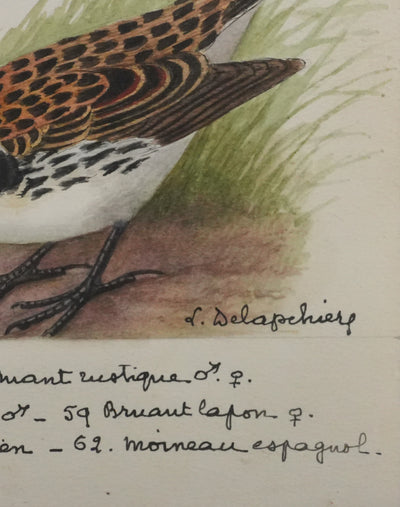 L. Delapchier
mant rustique ♂. ♀.
♂ - 59 Bruant lapon ♀.
en - 62. Moineau espagnol.